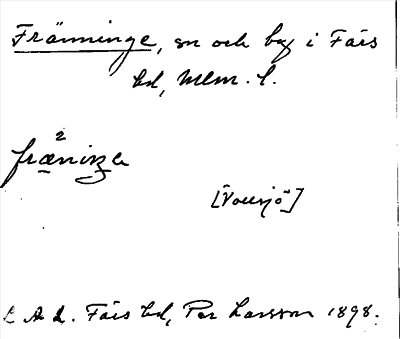 Fränninge, sn och by i Färs
hd, Mlm. l.
2
fræninge
[Vollsjö]
L A L. Färs hd, Per Larsson 1898.